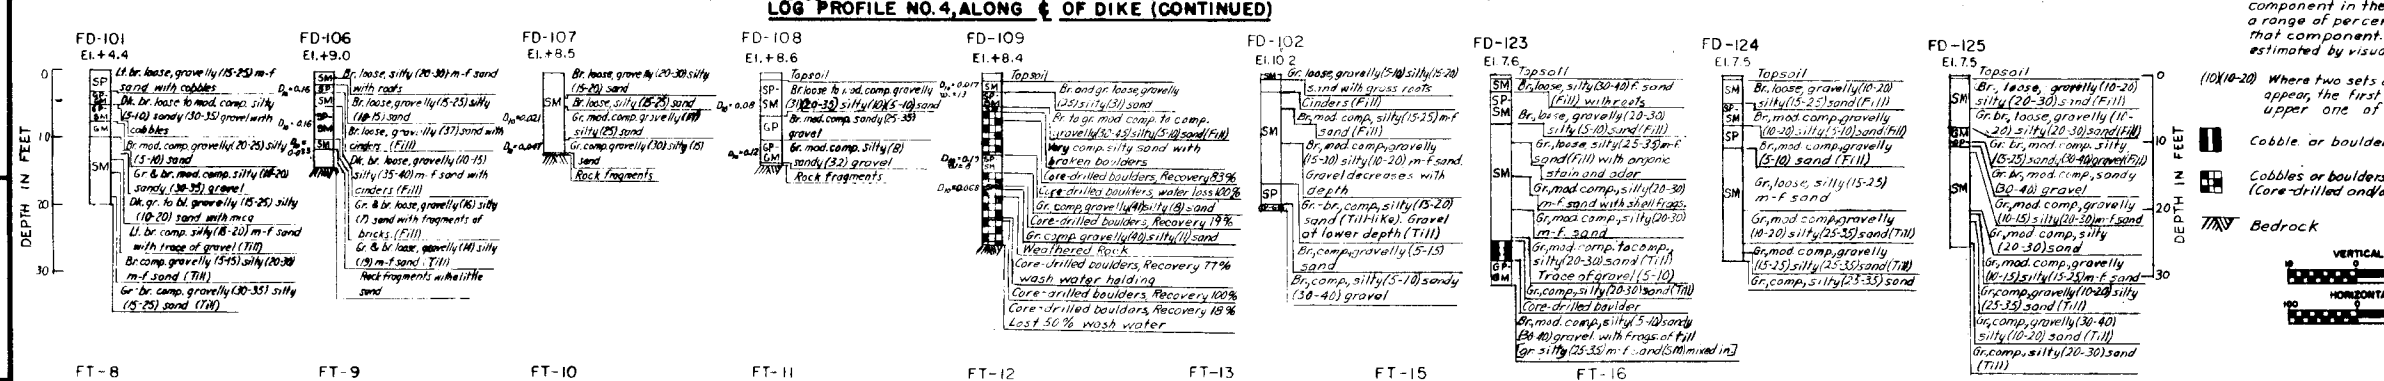 LOG PROFILE NO. 4, ALONG ℄ OF DIKE (CONTINUED)
component in the
a range of percen
that component.
estimated by visua
(10)(10-20) Where two sets o
appear, the first
upper one of
Cobble or boulder
Cobbles or boulders
(Core-drilled and/o
Bedrock
VERTICAL
10 0
HORIZONTA
100 0
DEPTH IN FEET
0
10
20
30
FD-101
El.+4.4
SP
GM
SM
Lt. br. loose, gravelly (15-25) m-f
sand with cobbles
Dk. br. loose to mod. comp. silty
(5-10) sandy (30-35) gravel with
cobbles
Br. mod. comp. gravelly (20-25) silty
(5-10) sand
Gr. & br. mod. comp. silty (10-20)
sandy (30-35) gravel
Dk. gr. to bl. gravelly (15-25) silty
(10-20) sand with mica
Lt. br. comp. silty (15-20) m-f sand
with trace of gravel (Till)
Br. comp. gravelly (5-15) silty (20-30)
m-f sand (Till)
Gr-br. comp. gravelly (30-35) silty
(15-25) sand (Till)
FD-106
El.+9.0
SM
SM
SM
D₁₀=0.16
D₁₀=0.16
Br. loose, silty (20-30) m-f sand
with roots
Br. loose, gravelly (15-25) silty
(10-15) sand
Br. loose, gravelly (37) sand with
cinders (Fill)
Dk. br. loose, gravelly (10-15)
silty (35-40) m-f sand with
cinders (Fill)
Gr. & br. loose, gravelly (16) silty
(7) sand with fragments of
bricks (Fill)
Gr. & br. loose, gravelly (14) silty
(19) m-f sand (Till)
Rock fragments with a little
sand
FD-107
El.+8.5
SM
D₁₀=0.021
Br. loose, gravelly (20-30) silty
(15-20) sand
Br. loose, silty (15-25) sand
Gr. mod. comp. gravelly
silty (25) sand
Gr. comp. gravelly (30) silty (15)
sand
Rock fragments
FD-108
El.+8.6
SP-
SM
GP
GP-
GM
D₁₀=0.08
D₁₀=0.12
Topsoil
Br. loose to mod. comp. gravelly
(31)(20-35) silty (10)(5-10) sand
Br. mod. comp. sandy (25-35)
gravel
Gr. mod. comp. silty (8)
sandy (32) gravel
Rock fragments
FD-109
El.+8.4
D₁₀=0.017
D₁₀=0.068
Topsoil
Br. and gr. loose, gravelly
(25) silty (31) sand
Br to gr. mod. comp. to comp.
gravelly (30-45) silty (5-10) sand (Fill)
Very comp. silty sand with
broken boulders
Core-drilled boulders, Recovery 83%
Core-drilled boulders, water loss 100%
Gr. comp. gravelly (41) silty (8) sand
Core-drilled boulders, Recovery 19%
Gr. comp. gravelly (40) silty (11) sand
Weathered Rock
Core-drilled boulders, Recovery 77%
wash water holding
Core-drilled boulders, Recovery 100%
Core-drilled boulders, Recovery 18%
Lost 50% wash water
FD-102
El. 10.2
SM
SM
SP
Gr. loose, gravelly (5-10) silty (15-20)
sand with grass roots
Cinders (Fill)
Br, mod. comp, silty (15-25) m-f
sand (Fill)
Br, mod. comp, gravelly
(15-20) silty (10-20) m-f sand.
Gravel decreases with
depth
Gr.-br., comp, silty (15-20)
sand (Till-like). Gravel
at lower depth (Till)
Br, comp, gravelly (5-15)
sand
Br, comp, silty (5-10) sandy
(30-40) gravel
FD-123
El. 7.6
SM
SP-
SM
SM
GP-
GM
Topsoil
Br, loose, silty (30-40) f. sand
(Fill) with roots
Br, loose, gravelly (20-30)
silty (5-10) sand (Fill)
Gr, loose, silty (25-35) m-f
sand (Fill) with organic
stain and odor
Gr, mod comp, silty (20-30)
m-f sand with shell frags.
Gr, mod. comp, silty (20-30)
m-f. sand
Gr, mod. comp. to comp.,
silty (20-30) sand (Till)
Trace of gravel (5-10)
Gr, comp, silty (20-30) sand (Till)
Core-drilled boulder
Br, mod. comp, silty (5-10) sandy
(30-40) gravel with frags. of till
[gr silty (25-35) m-f sand (SM) mixed in]
FD-124
El. 7.5
SM
SP-
SM
SP
SM
Topsoil
Br, loose, gravelly (10-20)
silty (15-25) sand (Fill)
Br, mod. comp, gravelly
(10-20) silty (5-10) sand (Fill)
Br, mod comp, gravelly
(5-10) sand (Fill)
Gr, loose, silty (15-25)
m-f sand
Gr, mod comp, gravelly
(10-20) silty (25-35) sand (Till)
Gr, mod comp, gravelly
(15-25) silty (25-35) sand (Till)
Gr, comp, silty (25-35) sand
FD-125
El. 7.5
SM
GM
SM
Topsoil
Br, loose, gravelly (10-20)
silty (20-30) sand (Fill)
Gr. br, loose, gravelly (10-
20) silty (20-30) sand (Fill)
Gr. br, mod comp, silty
(15-25) sandy (30-40) gravel (Fill)
Gr. br, mod comp, sandy
(30-40) gravel
Gr, mod comp, gravelly
(10-15) silty (20-30) m-f sand
Gr, mod. comp, silty
(20-30) sand
Gr, mod. comp, gravelly
(10-15) silty (15-25) m-f sand
Gr, comp, gravelly (10-20) silty
(25-35) sand (Till)
Gr, comp, gravelly (30-40)
silty (10-20) sand (Till)
Gr, comp, silty (20-30) sand
(Till)
0
10
20
30
DEPTH IN FEET
FT-8 FT-9 FT-10 FT-11 FT-12 FT-13 FT-15 FT-16